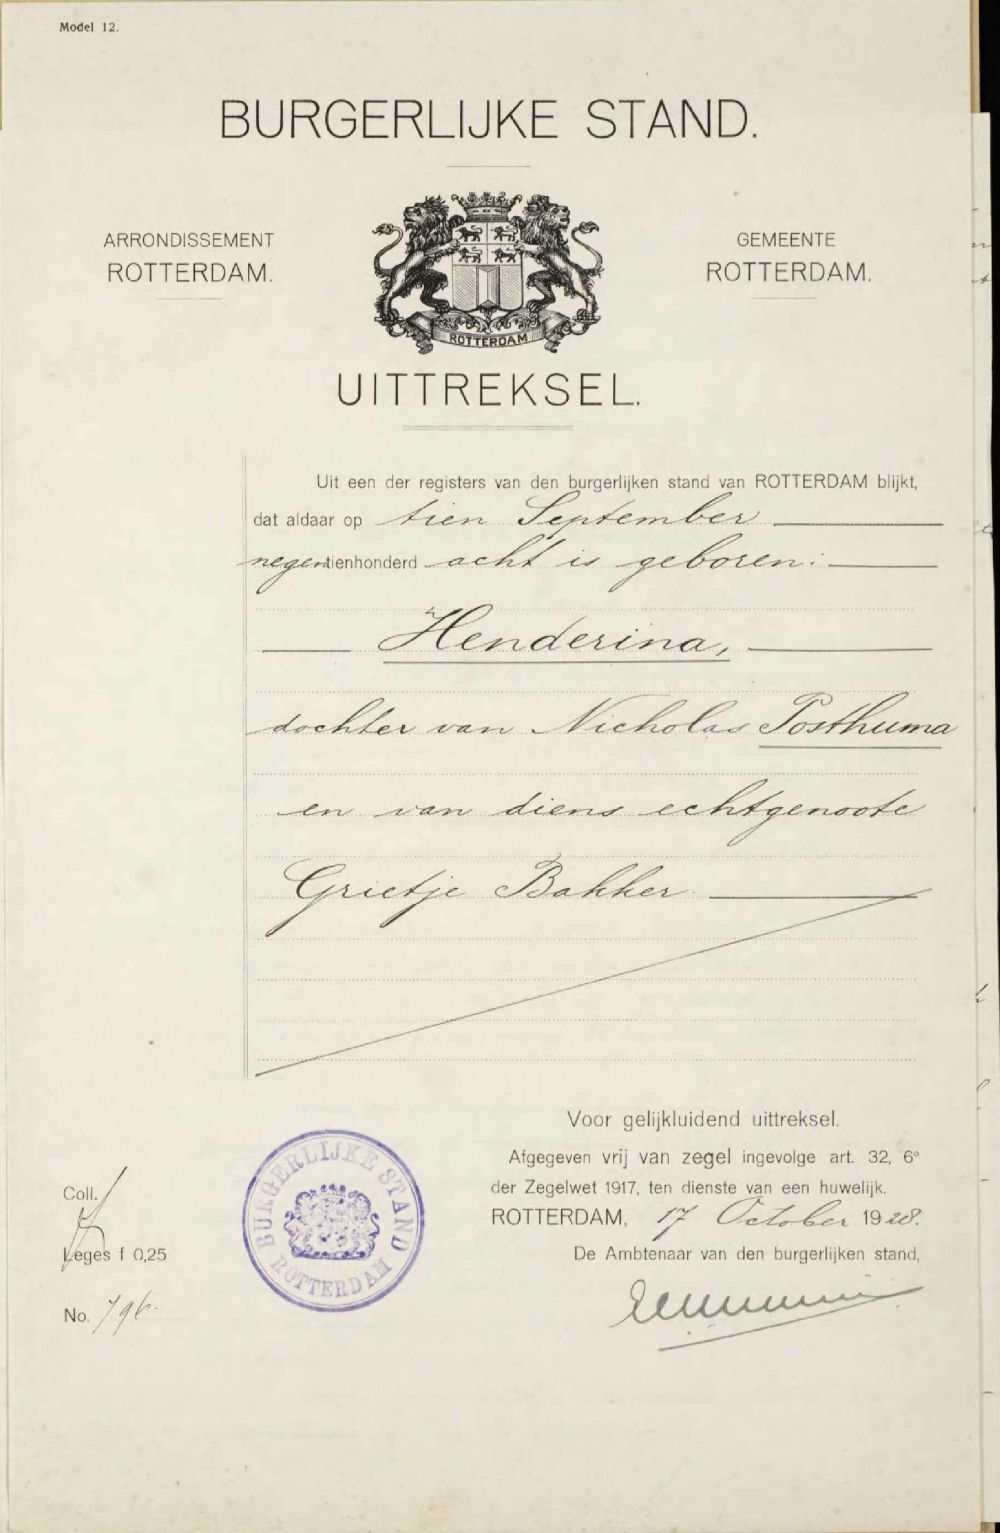 Model 12.
BURGERLIJKE STAND.
ARRONDISSEMENT
ROTTERDAM.
GEMEENTE
ROTTERDAM.
ROTTERDAM
UITTREKSEL.
Uit een der registers van den burgerlijken stand van ROTTERDAM blijkt,
dat aldaar op tien September
negentienhonderd acht is geboren:
Henderina,
dochter van Nicholas Posthuma
en van diens echtgenoote
Grietje Bakker.
Voor gelijkluidend uittreksel.
Afgegeven vrij van zegel ingevolge art. 32, 6º
der Zegelwet 1917, ten dienste van een huwelijk.
ROTTERDAM, 17 October 1928.
De Ambtenaar van den burgerlijken stand,
Coll.
Leges f 0,25
No. 796.
BURGERLIJKE STAND
ROTTERDAM